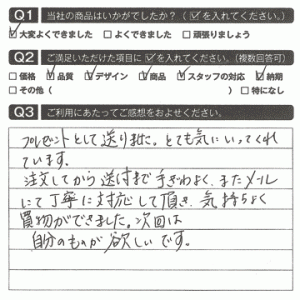 Q1 当社の商品はいかがでしたか？（☑を入れてください。）
☑大変よくできました □よくできました □頑張りましょう
Q2 ご満足いただけた項目に☑を入れてください。（複数回答可）
□価格 ☑品質 ☑デザイン ☑商品 ☑スタッフの対応 ☑納期
□その他（ ） □特になし
Q3 ご利用にあたってご感想をおよせください。
プレゼントとして送りました。とても気にいってくれ
ています。
注文してから送付まで手ぎわよく、またメール
にて丁寧に対応して頂き、気持ちよく
買物ができました。次回は
自分のものが欲しいです。